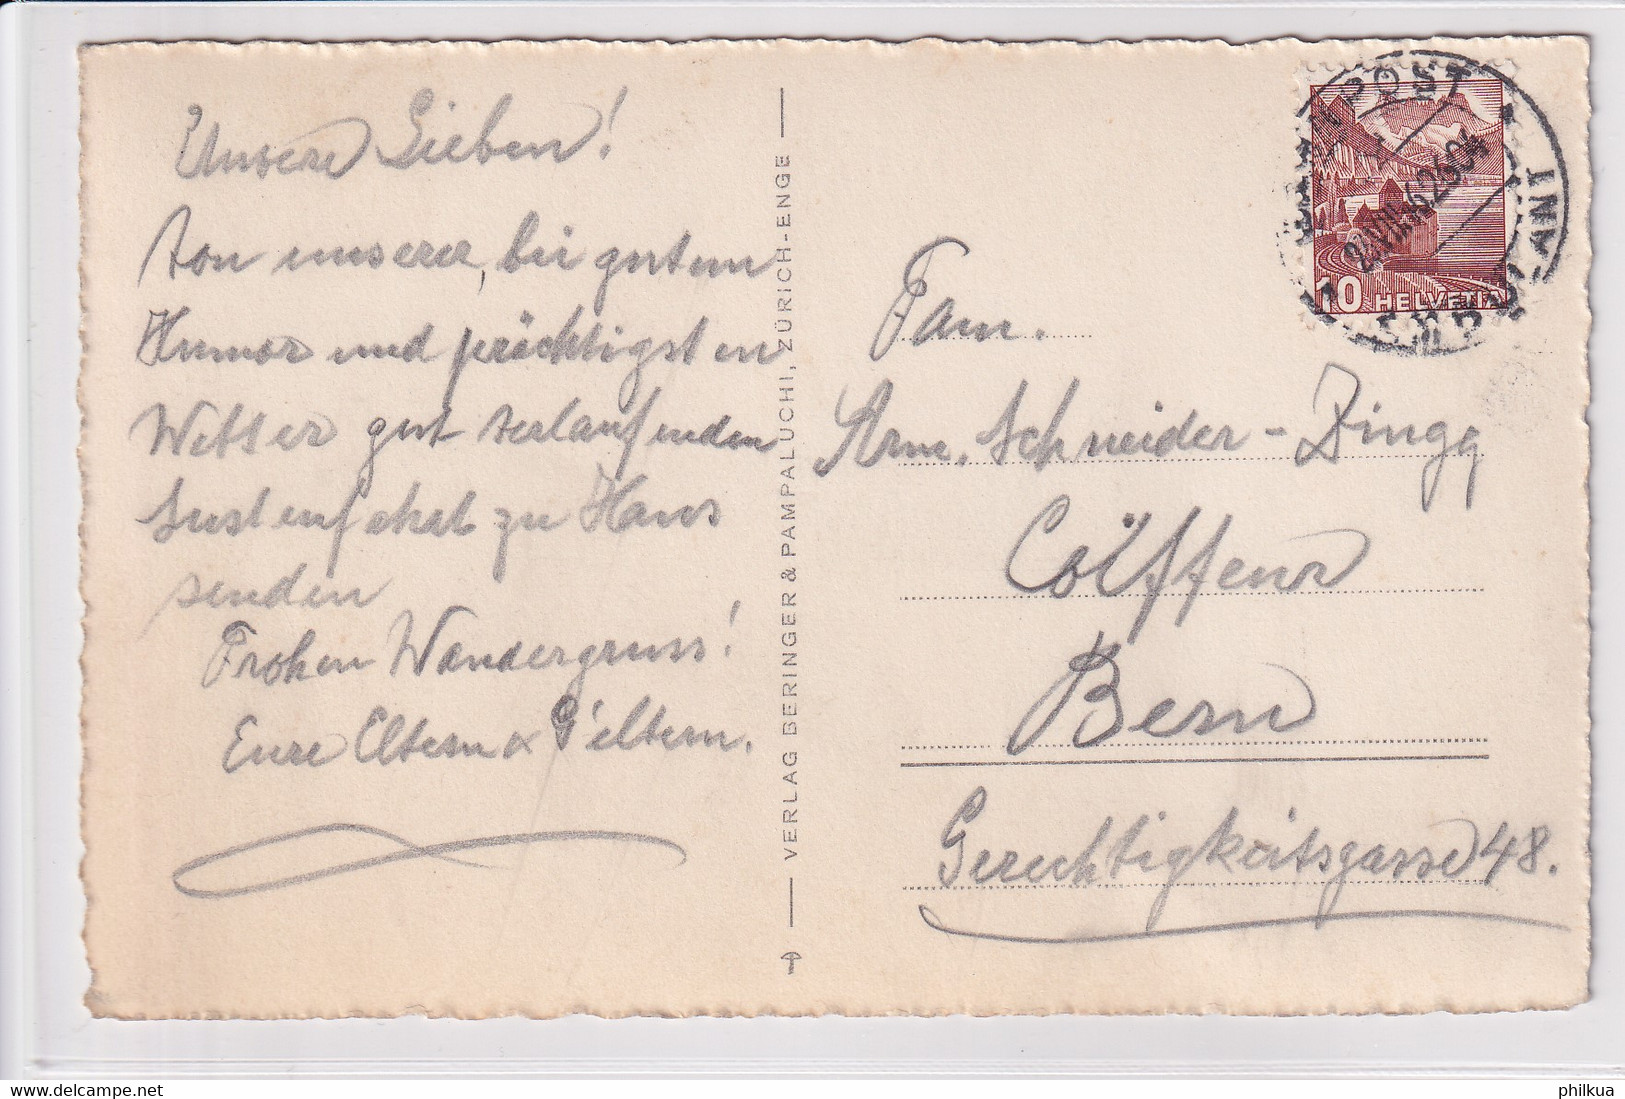 Unsere Lieben!
Von unserer, bei gutem
Humor und prächtigsten
Wetter gut verlaufenden
Sustenfahrt zu Haus
senden
Frohen Wandergruss!
Eure Eltern & G'eltern.
VERLAG BERINGER & PAMPALUCHI, ZÜRICH-ENGE
POST
AMBULANT
10 HELVETIA
Fam.
Arn. Schneider-Dingg
Coiffeur
Bern
Gerechtigkeitsgasse 48.
philkua